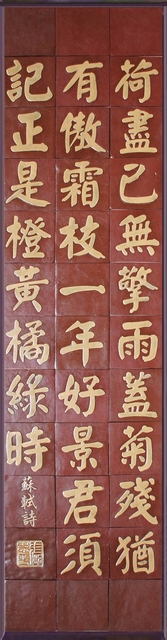 荷盡已無擎雨蓋菊殘猶
有傲霜枝一年好景君須
記正是橙黃橘綠時
蘇軾詩